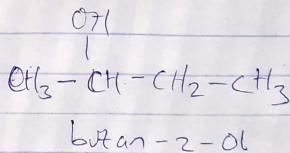 OH
|
CH3 - CH - CH2 - CH3
butan-2-ol